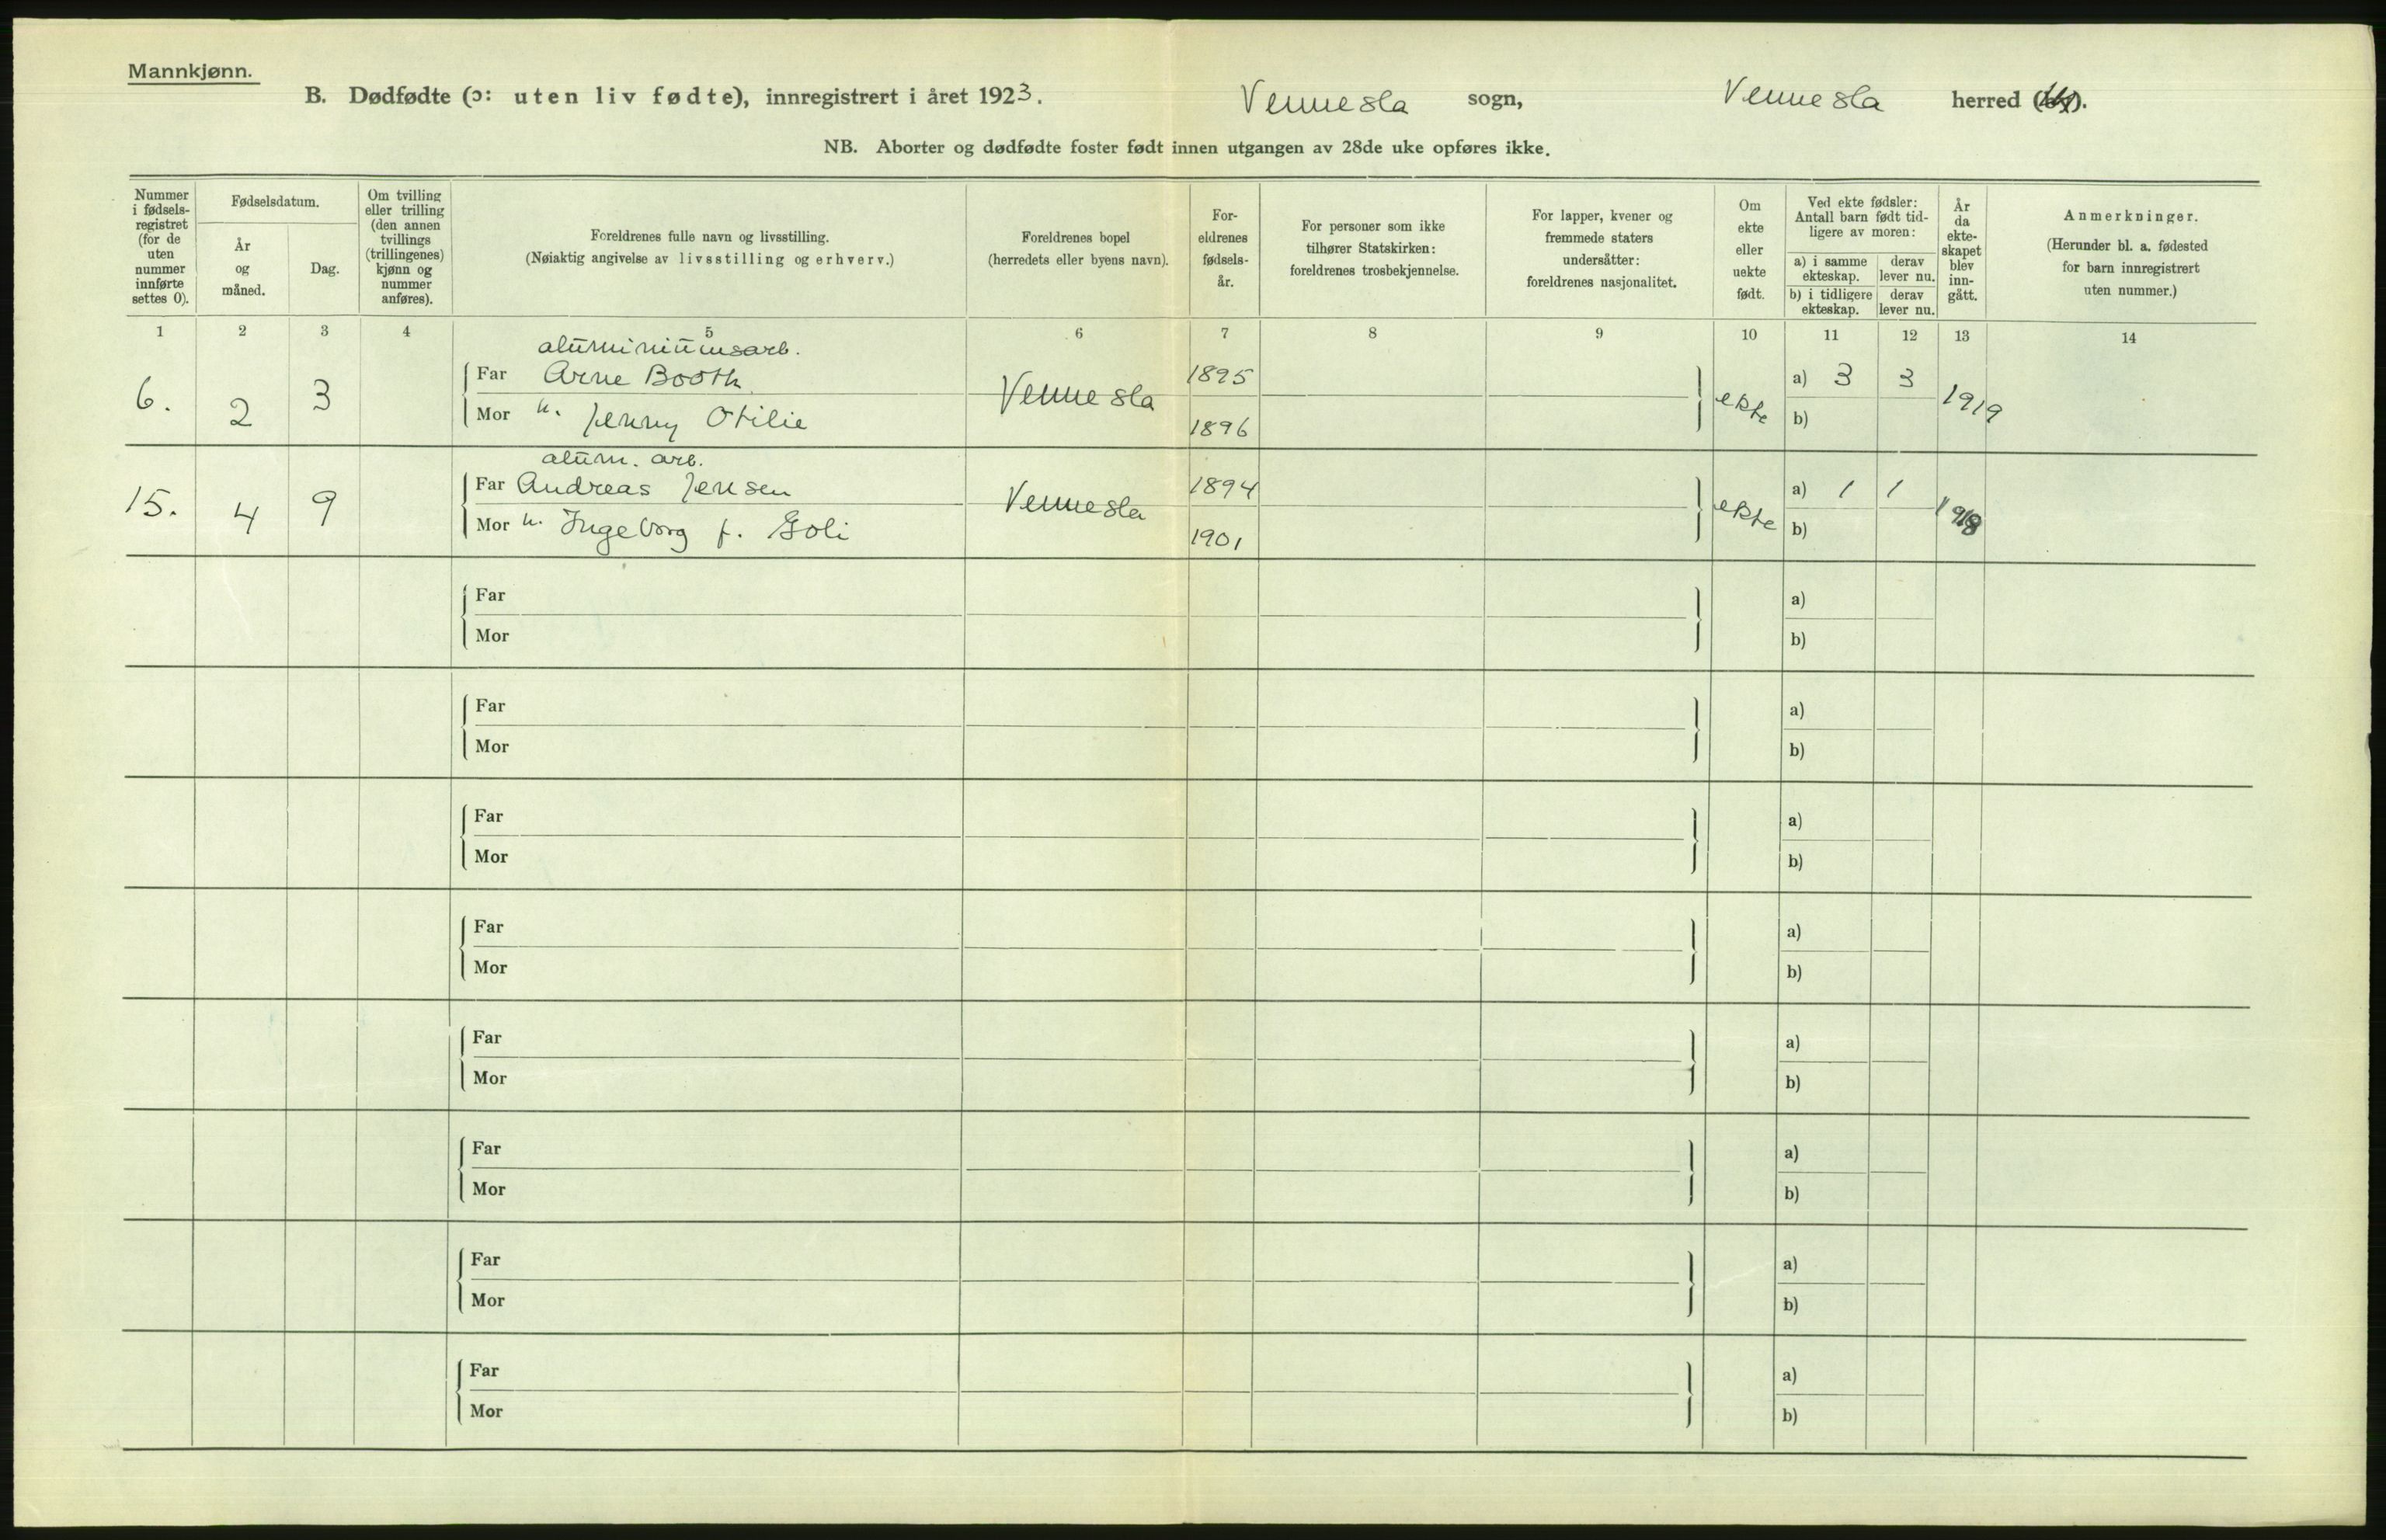 Mannkjønn.
B. Dødfødte (ɔ: uten liv fødte), innregistrert i året 1923. Vennesla sogn, Vennesla herred (by).
NB. Aborter og dødfødte foster født innen utgangen av 28de uke opføres ikke.
Nummer i fødsels-registret (for de uten nummer innførte settes 0).
Fødselsdatum.
År og måned.
Dag.
Om tvilling eller trilling (den annen tvillings (trillingenes) kjønn og nummer anføres).
Foreldrenes fulle navn og livsstilling.
(Nøiaktig angivelse av livsstilling og erhverv.)
Foreldrenes bopel
(herredets eller byens navn).
For-eldrenes fødsels-år.
For personer som ikke tilhører Statskirken: foreldrenes trosbekjennelse.
For lapper, kvener og fremmede staters undersåtter: foreldrenes nasjonalitet.
Om ekte eller uekte født.
Ved ekte fødsler: Antall barn født tid-ligere av moren:
a) i samme ekteskap. derav lever nu.
b) i tidligere ekteskap. derav lever nu.
År da ekte-skapet blev inn-gått.
Anmerkninger.
(Herunder bl. a. fødested for barn innregistrert uten nummer.)
1 2 3 4 5 6 7 8 9 10 11 12 13 14
aluminiumsarb.
6. 2 3 Far Arne Booth Vennesla 1895 ekte a) 3 3 1919
Mor h. Jenny Otilie 1896 b)
alum. arb.
15. 4 9 Far Andreas Jensen Vennesla 1894 ekte a) 1 1 1918
Mor h. Ingeborg f. Goli 1901 b)
Far a)
Mor b)
Far a)
Mor b)
Far a)
Mor b)
Far a)
Mor b)
Far a)
Mor b)
Far a)
Mor b)
Far a)
Mor b)
Far a)
Mor b)